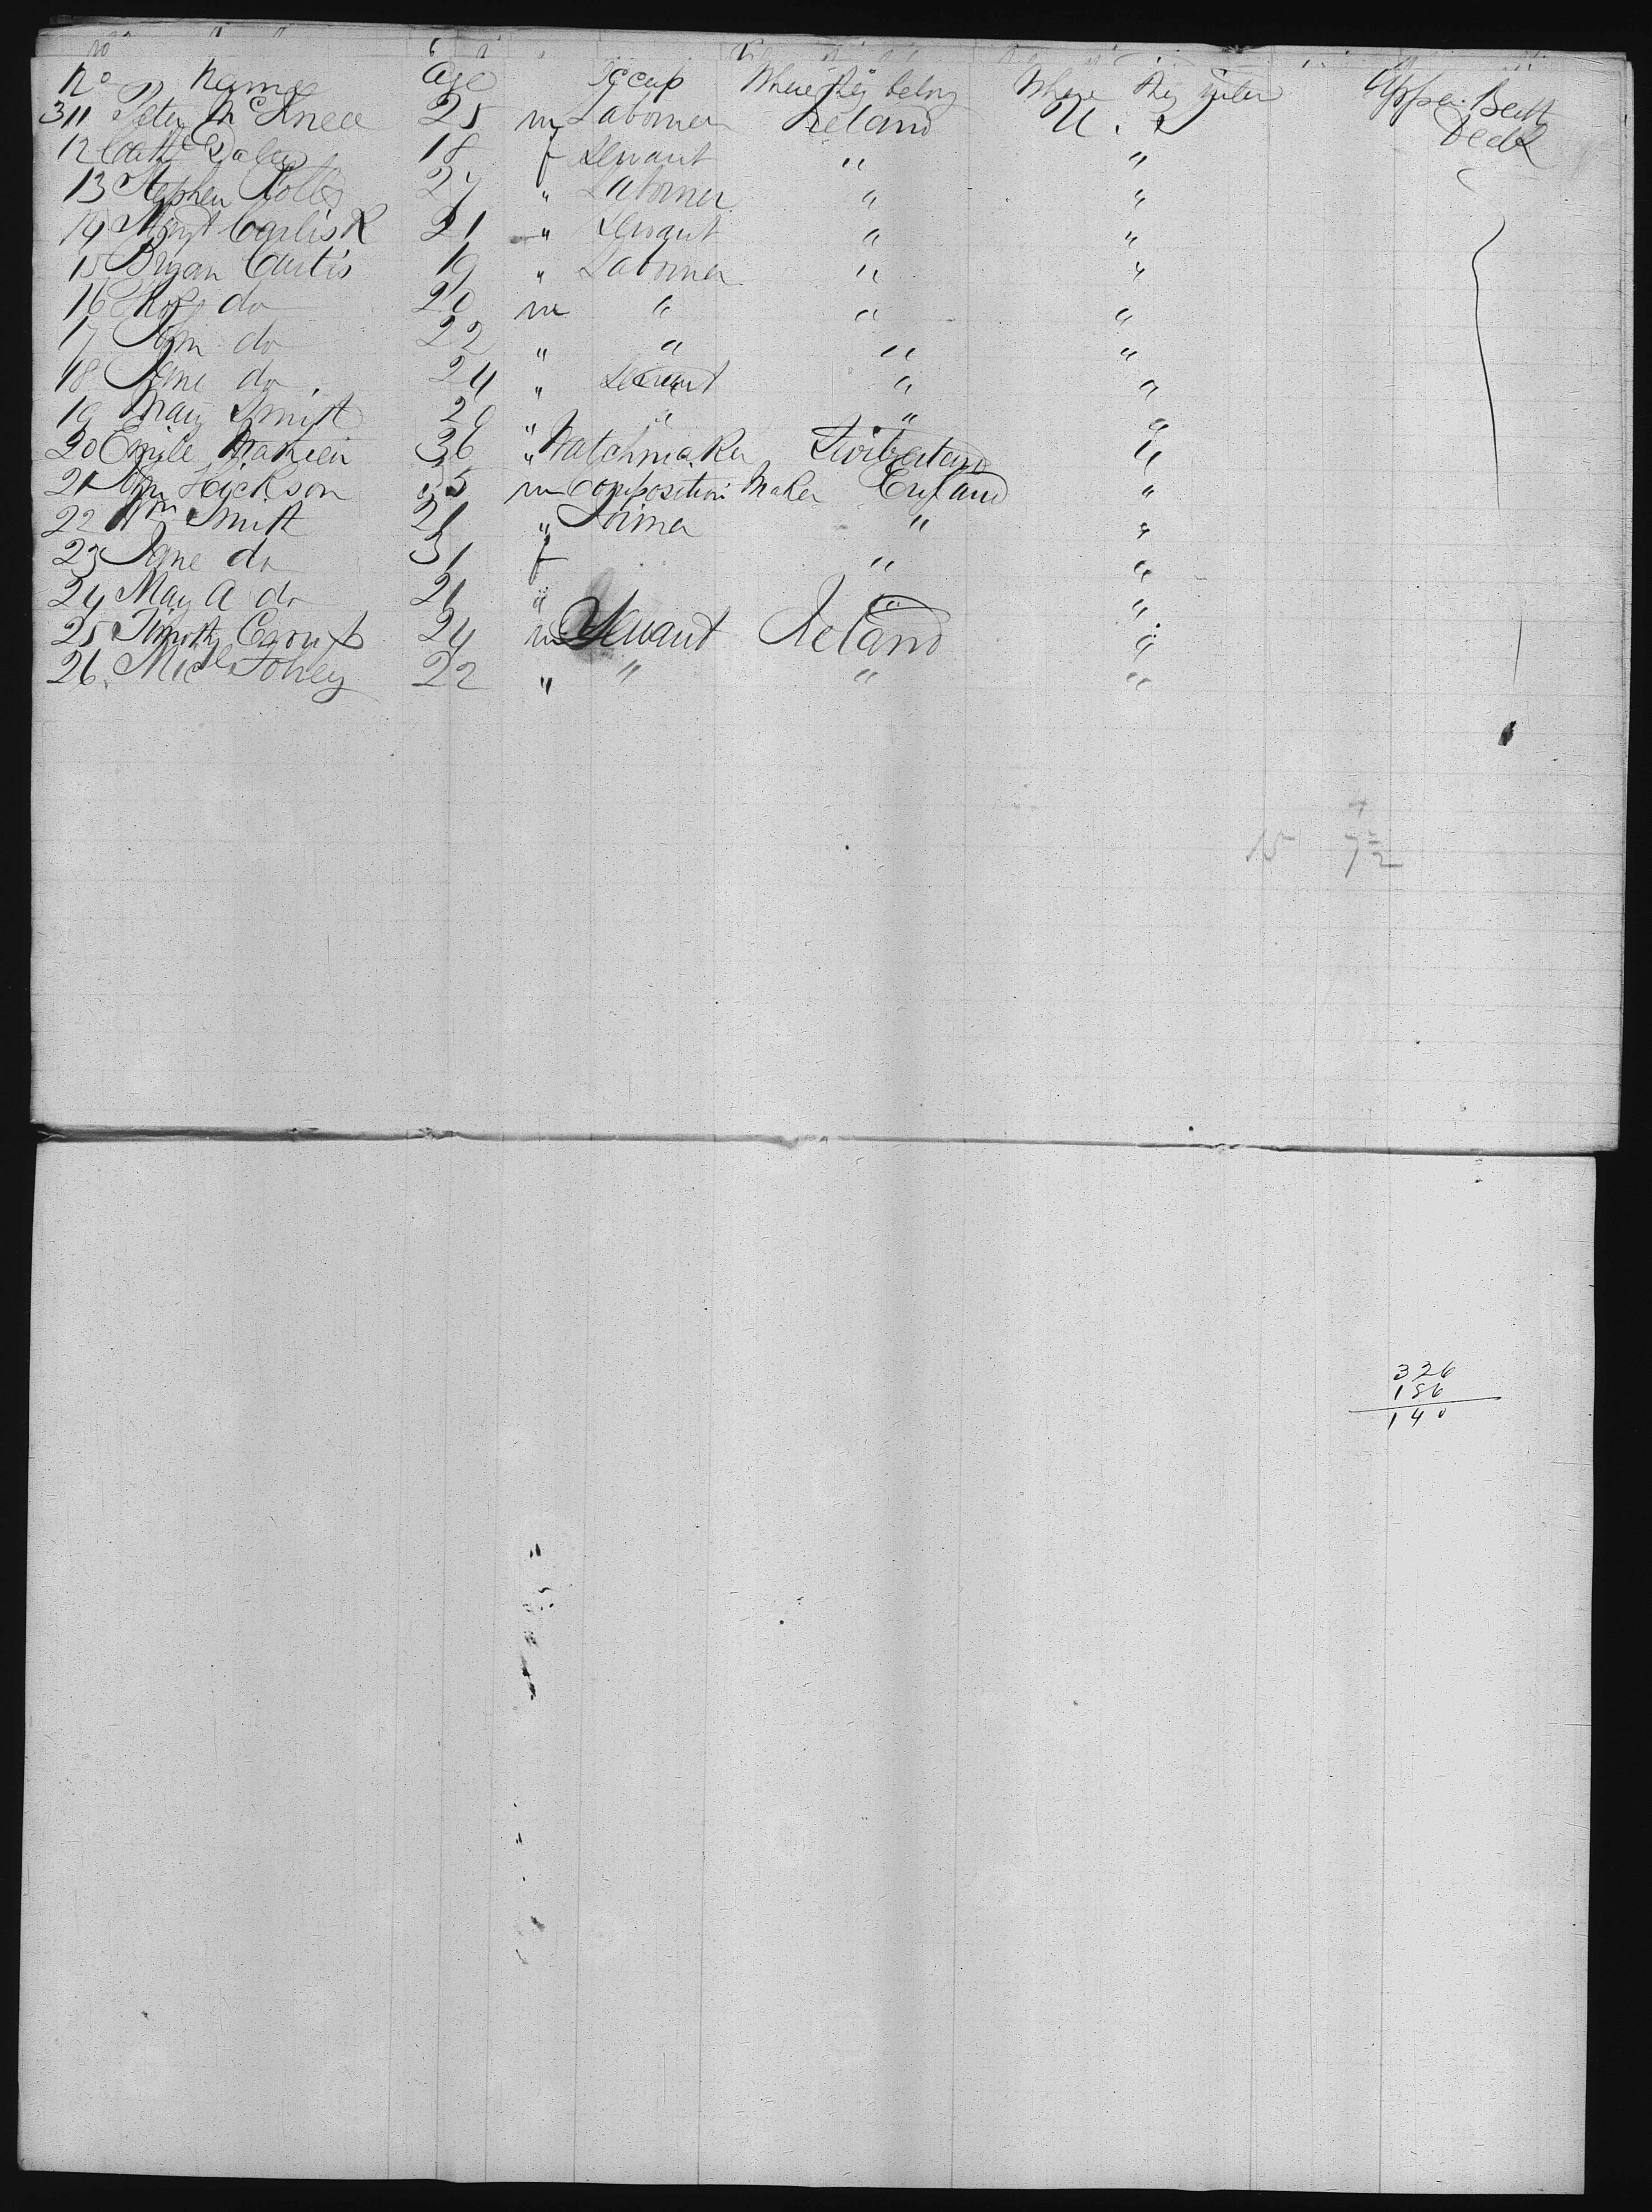 No Names Age Occup Where they belong Where they enter Upper Beth Deck
311 Peter McKnee 25 m Laborner Ireland U. S
12 Cathe Daley 18 f Servant " "
13 Stephen 27 " Laborner " "
14 Margt Carlisk 21 " Servant " "
15 Bryan Curtis 19 " Laborner " "
16 Thos do 20 m " " "
17 do 22 " " " "
18 Jane do 24 " Servant " "
19 Mary Smith 20 " " " "
20 Emile 36 " Watchmaker Switzerland "
21 Hickson 35 m Composition Maker England "
22 Wm Smith 21 " Joiner " "
23 Jane do 31 f " "
24 Mary A do 21 " " "
25 Timothy 24 m Servant Ireland "
26. Michl Tohey 22 " " " "
15 7 1/2
326
186
140